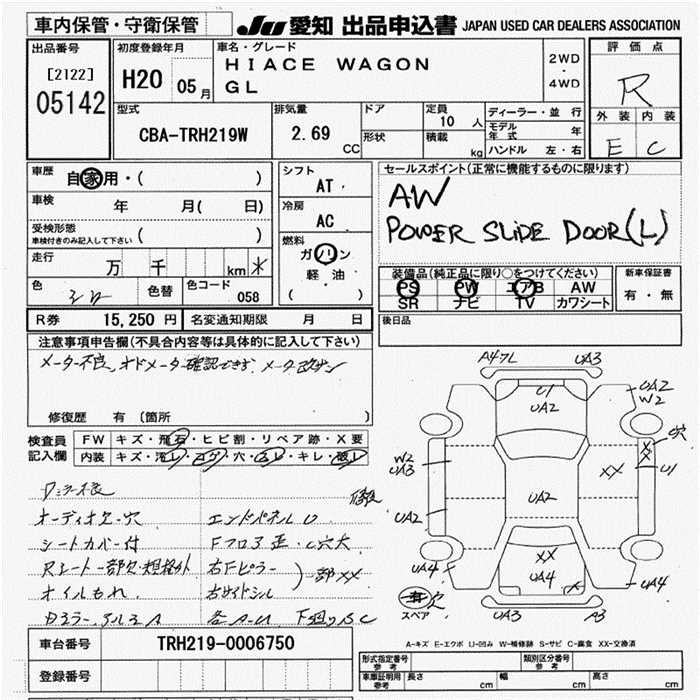 車内保管・守衛保管
JU 愛知 出品申込書 JAPAN USED CAR DEALERS ASSOCIATION
出品番号
[2122]
05142
初度登録年月
H20 05月
車名・グレード
HIACE WAGON
GL
2WD
・
4WD
評価点
R
外装 内装
E C
型式
CBA-TRH219W
排気量
2.69
CC
ドア
形状
定員
10人
積載
kg
ディーラー・並行
モデル年式 年
ハンドル 左・右
車歴
自家用・( )
車検
年 月( 日)
受検形態
車検付きのみ記入して下さい ( )
走行
万 千 km
色
色替
色コード
058
シフト
AT
冷房
AC
燃料
ガソリン
軽油
( )
セールスポイント(正常に機能するものに限ります)
AW
POWER SLIDE DOOR(L)
装備品(純正品に限り○をつけてください)
PS PW エアB AW
SR ナビ TV カワシート
新車保証書
有・無
R券 15,250 円
名変通知期限 月 日
後日品
注意事項申告欄(不具合内容等は具体的に記入して下さい)
修復歴 有 (箇所 )
検査員
記入欄
FW キズ・飛石・ヒビ割・リペア跡・X要
内装 キズ・汚レ・コゲ・穴・スレ・キレ・破レ
オーディオ欠・穴
シートカバー付
オイルもれ
エンドパネルU
右Fピラー
右サイドシル
部XX
A4フL UA3
U1
UA2
UA2
W2
W2
UA3
穴
XX
U1
UA2
UA2
XX
UA4
UA4
UA4
スペア
UA3
A3
A-キズ E-エクボ U-凹み W-補修跡 S-サビ C-腐食 XX-交換済
車台番号
TRH219-0006750
登録番号
形式指定番号
参考
類別区分番号
参考
車庫証明用
参考
長さ cm
幅 cm
高さ cm